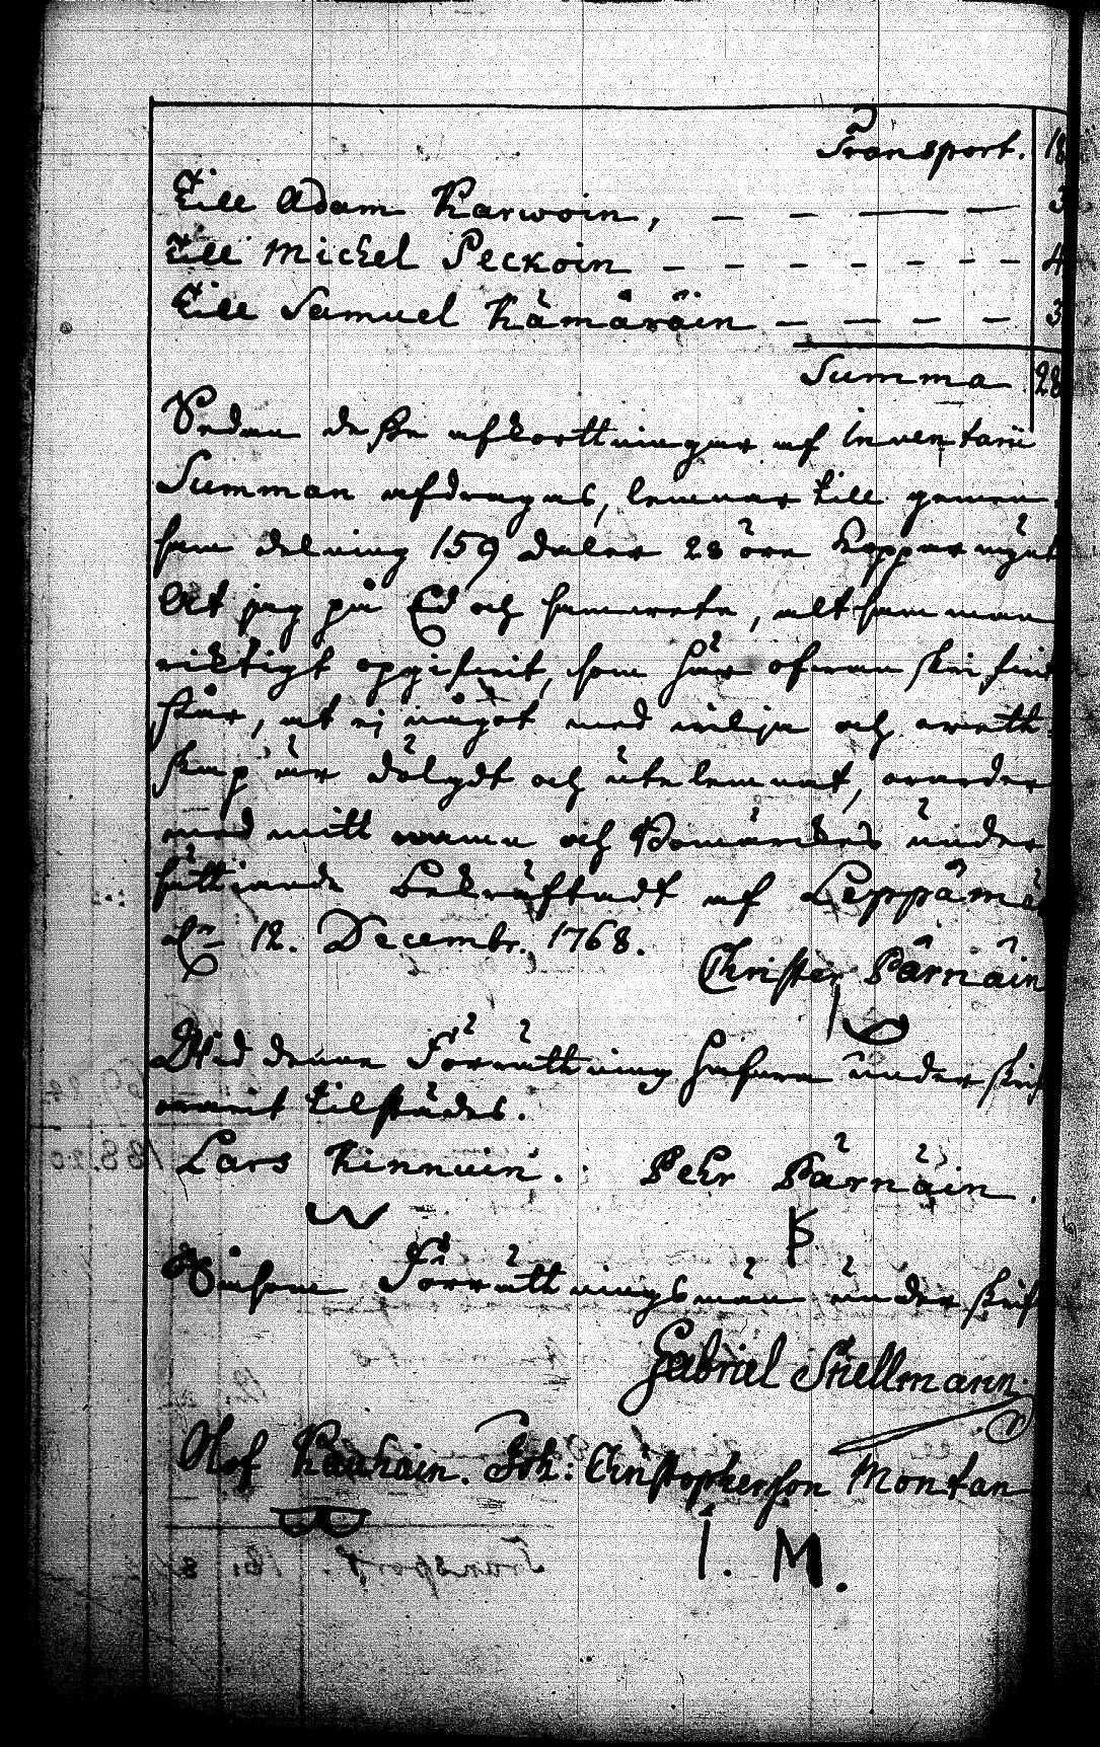 Transport. 18
Till Adam Karwoin, — — — — 3
Till Michel Peckoin — — — — — — — 4
Till Samuel Kämäräin — — — — 3
Summa 28
Sedan desse afkortningar af Inventarii
Summan afdragas, lemnar till gemen-
sam delning 159 daler 28 öre Kopparmynt
At jag på Ed och samwete, alt samman
riktigt oppgifwit, som här ofwan skrifwit
står, at ej något med wilja och wett-
skap är dölgdt och utelemnat, warder
med mitt namn och Bomärkes under
sättiande bekräftadt af Leppämä
12. Decembr. 1768.
Christer Pärnäin
Wid denna Förrättning hafwa under skrif
warit tilstädes.
Lars Kinnuin. Pehr Pärnäin.
Förrättningsmän under skrif
Gabriel Stellmann
Olof Kauhain. Joh: Christopherson Montan
I. M.
Transport. 161. 8